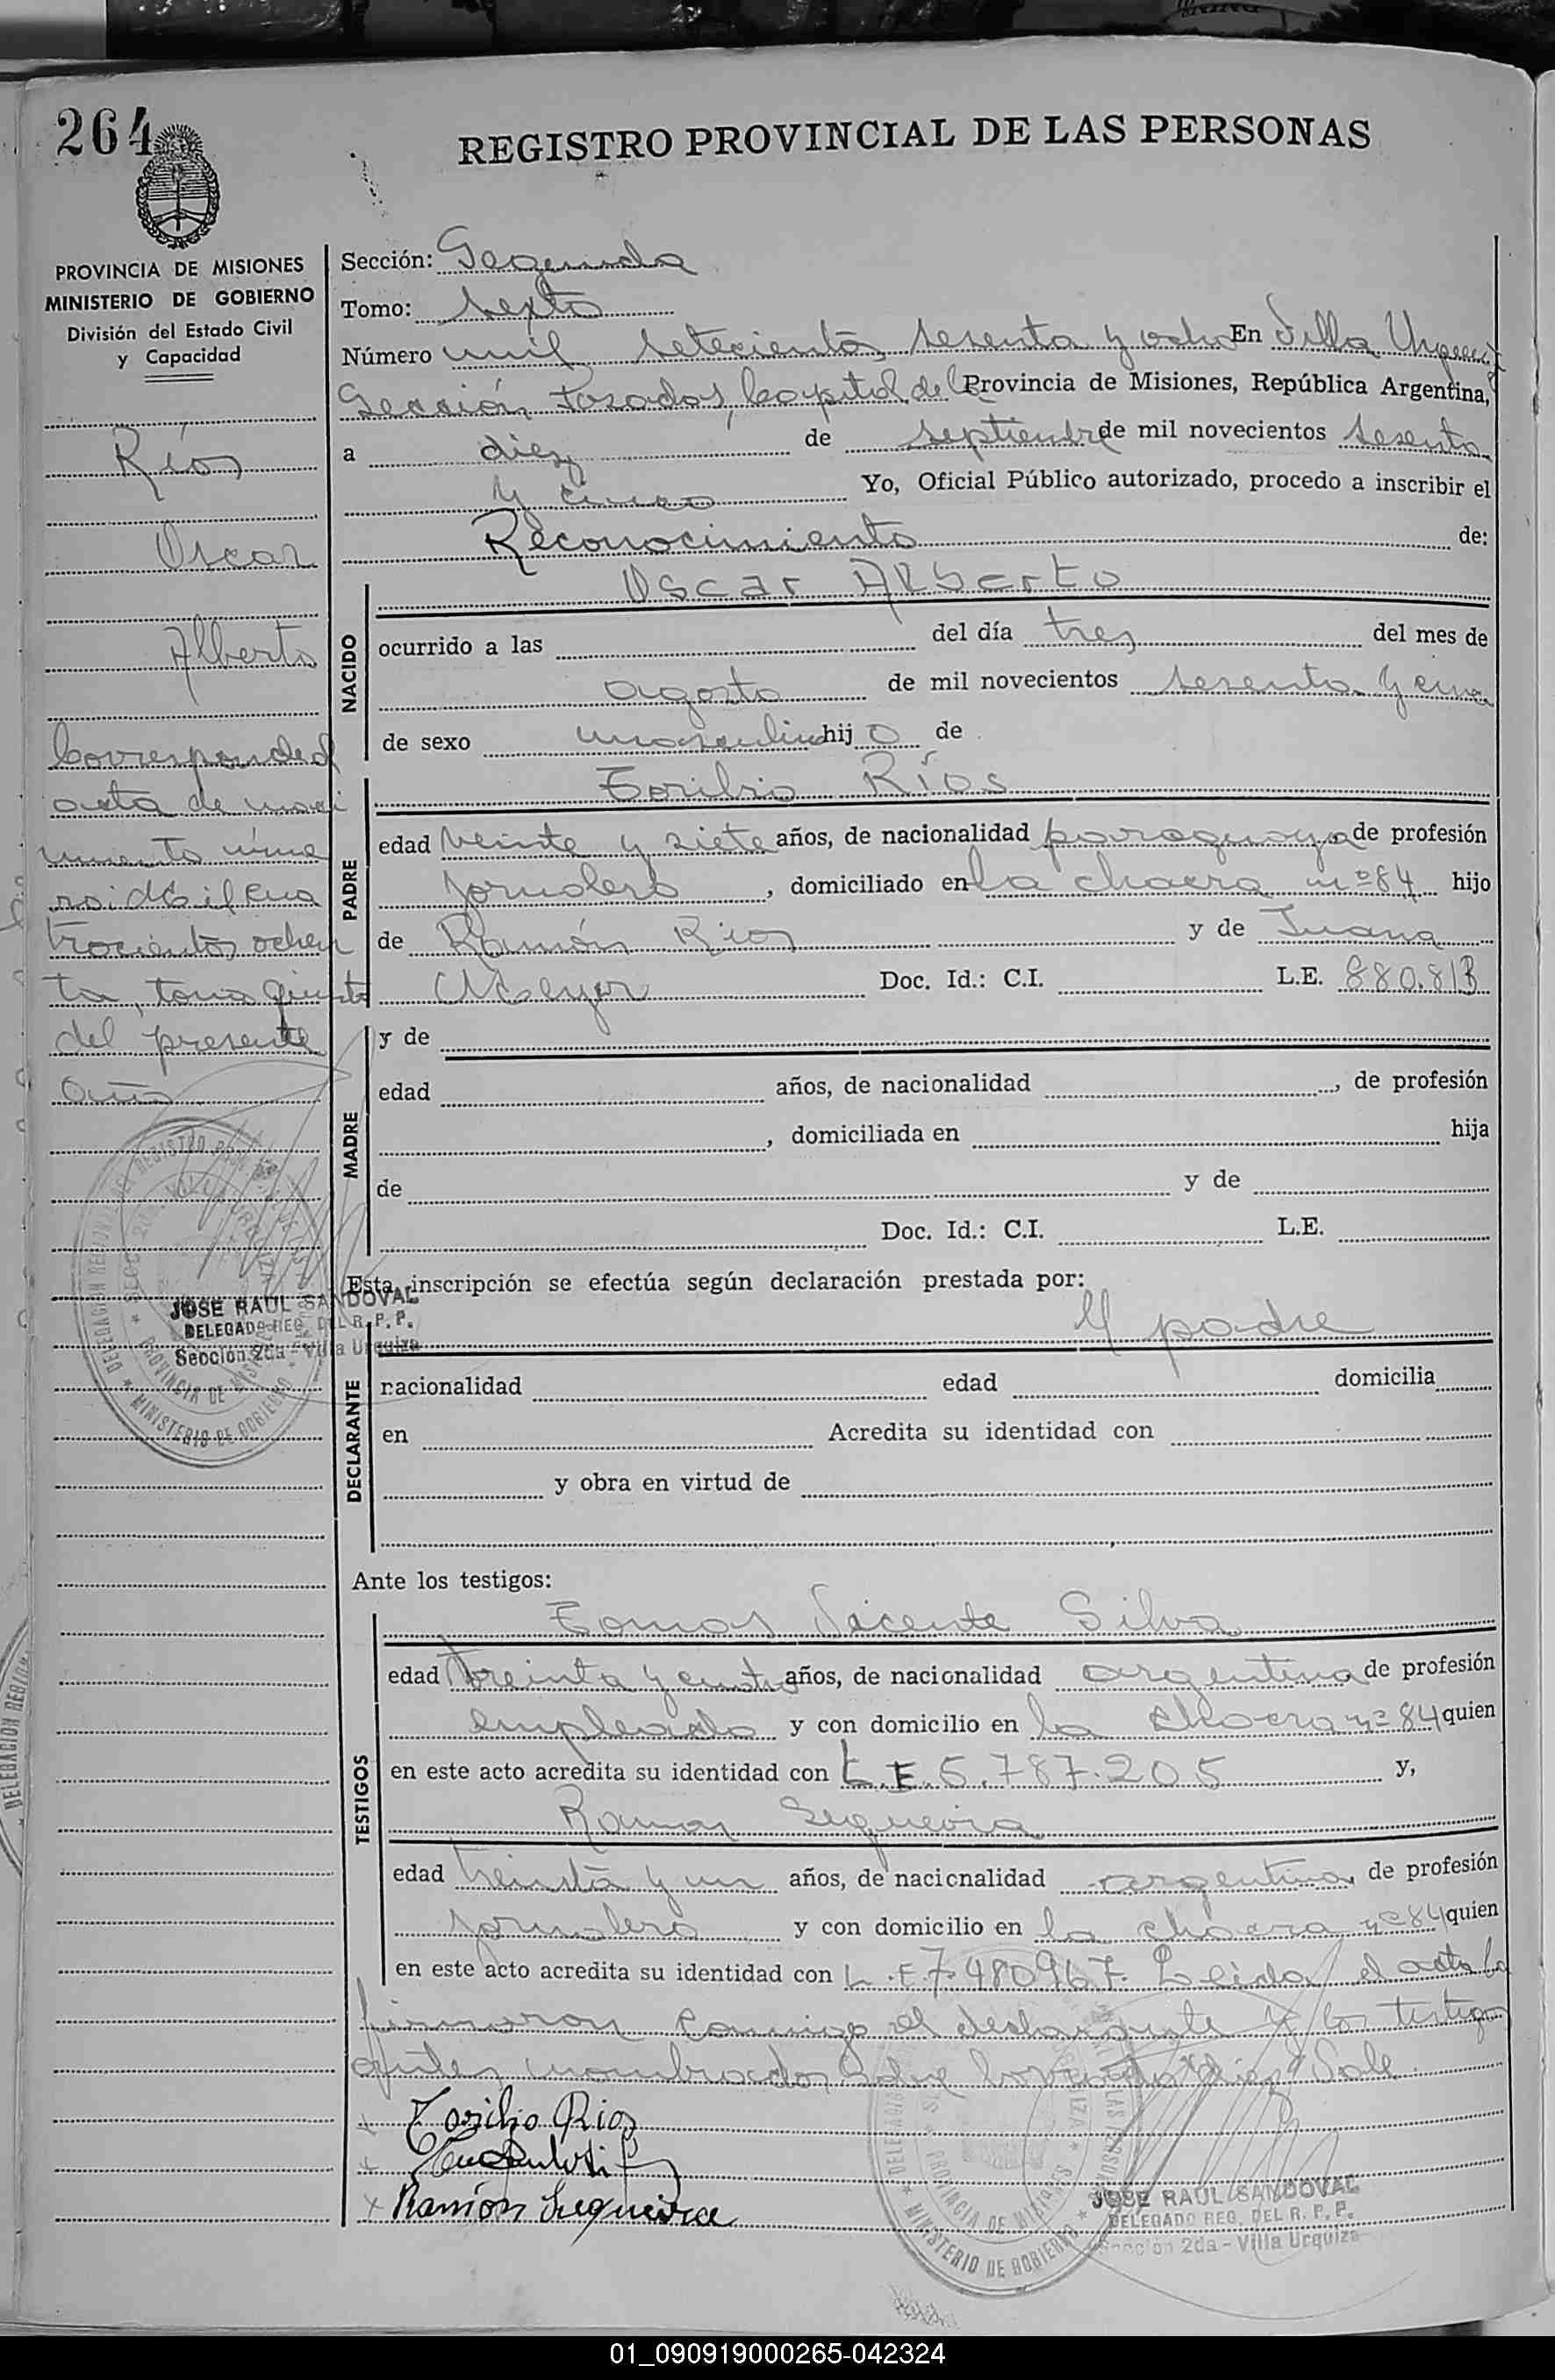 264
REGISTRO PROVINCIAL DE LAS PERSONAS
PROVINCIA DE MISIONES
MINISTERIO DE GOBIERNO
División del Estado Civil
y Capacidad
Ríos
Oscar
Alberto
Corresponde al
acta de naci
miento núme
ro: mil cua
trocientos ochen
ta, tomo quinto
del presente
año.
JOSE RAUL SANDOVAL
DELEGADO REG. DEL R. P. P.
Sección 2da - Villa Urquiza
Sección: Segunda
Tomo: sexto
Número mil setecientos sesenta y ocho En Villa Urquiza
Sección Posadas, Capital de la Provincia de Misiones, República Argentina,
a diez de septiembre de mil novecientos sesenta
y cinco Yo, Oficial Público autorizado, procedo a inscribir el
Reconocimiento de:
NACIDO
Oscar Alberto
ocurrido a las del día tres del mes de
agosto de mil novecientos sesenta y cinco
de sexo masculino hijo de
PADRE
Toribio Ríos
edad veinte y siete años, de nacionalidad paraguaya de profesión
jornalero, domiciliado en la chacra nº 84 hijo
de Ramón Ríos y de Juana
Meyer Doc. Id.: C.I. L.E. 880.813
MADRE
y de
edad años, de nacionalidad , de profesión
, domiciliada en hija
de y de
Doc. Id.: C.I. L.E.
Esta inscripción se efectúa según declaración prestada por:
DECLARANTE
El padre
nacionalidad edad domicilia
en Acredita su identidad con
y obra en virtud de
Ante los testigos:
TESTIGOS
Tomas Vicente Silva
edad treinta y cuatro años, de nacionalidad argentina de profesión
empleado y con domicilio en la chacra nº 84 quien
en este acto acredita su identidad con L.E. 5.787.205 y,
Ramon Sequeira
edad treinta y un años, de nacionalidad argentina, de profesión
jornalero y con domicilio en la chacra nº 84 quien
en este acto acredita su identidad con L.E. 7.480967. Leida el acta la
firmaron conmigo el declarante y los testigos
antes nombrados Sobre "diez" Vale
Toribio Rios
Ramón Sequeira
JOSE RAUL SANDOVAL
DELEGADO REG. DEL R. P. P.
Sección 2da - Villa Urquiza
01_090919000265-042324